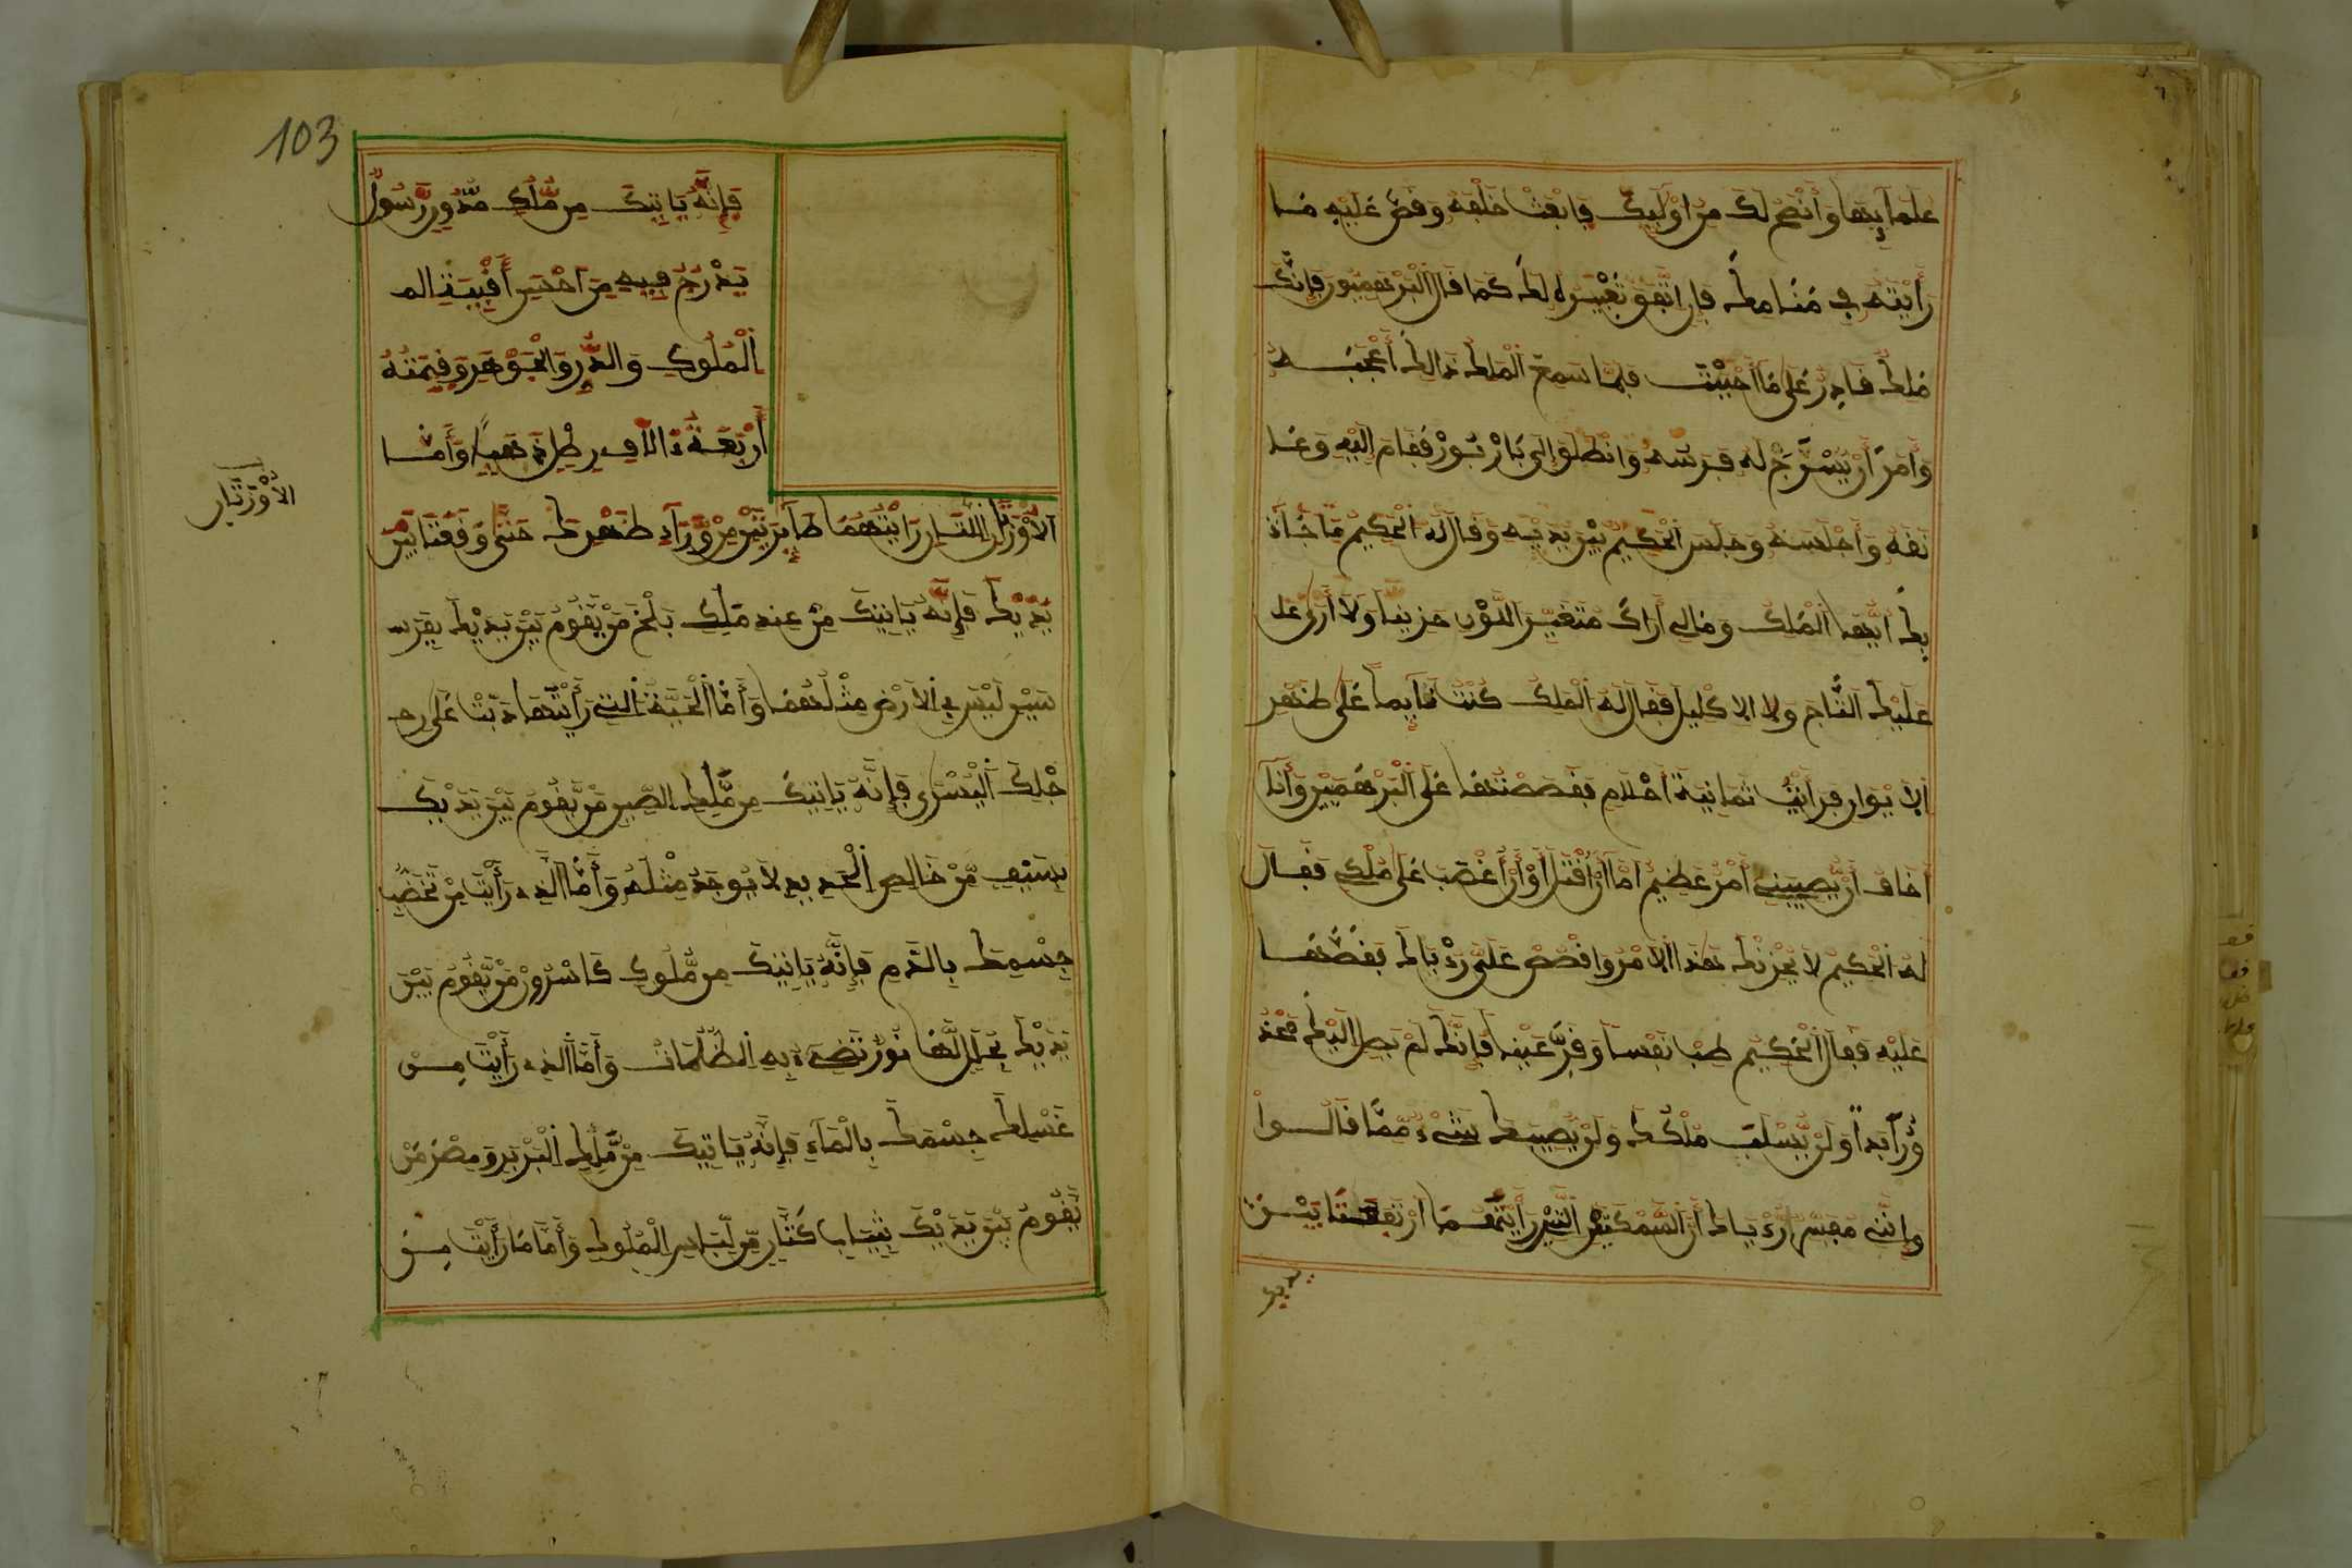 علمآيها وأنصح لك من اوليك فابعث خلفه وقص عليه ما
رأيته في منامك فإن اتفق تعبيره لك كما قال البرهميون فإنك
ملك قادر على ما أحببت فلما سمع الملك ذالك أعجبه
وأمر أن يسرج له فرسه وانطلق إلى بازبور فقام اليه وعا
نقه وأجلسه وجلس الحكيم بين يديه وقال له الحكيم ما جآء
بك أيها الملك ومالي أراك متغير اللون حزينا ولا أرى على
عليك التاج ولا الاكليل فقال له الملك كنت نآيما على ظهر
الايوان فرأيت ثمانية أحلام فقصصتها على البرهميين وأنا
أخاف أن يصيبني أمر عظيم اما أن أقتل أو أن أغصب على ملكي فقال
له الحكيم لا يحزنك هذا الامر واقصص علي رءياك فقصها
عليه فقال الحكيم طب نفسا وقر عينا فإنك لم يصل اليك محذ
ور أبدا ولن يسلب ملكك ولن يصيبك شيء مما قالوا
وإني مفسر رءياك أن السمكتين التين رأيتهما ارتفعتا بين
يديك
103
فإنه ياتيك من ملك رسول
يدرج فيه من أحسن أقبية الم
الملوك والدر والجوهر وقيمته
أربعة ءالاف رطل ذهبا وأما
الأوزتان التان رايتهما طآيرتين من ورآء ظهرك حتى وقعتا بين
الأوزتان
يديك فإنه ياتيك من عند ملك بلخ من يقوم بين يديك بفر
سين ليس في الارض مثلهما وأما الحية التي رأيتها دبت على ر
جلك اليسرى فإنه ياتيك من ملك الصين من يقوم بين يديك
بسيف من خالص الحديد لا يوجد مثله وأما الذي رأيت من تخضب
جسمك بالدم فإنه ياتيك من ملوك كاسرور من يقوم بين
يديك بحلل لها نور تضيء به الظلمات وأما الذي رأيت من
غسلك جسمك بالمآء فإنه ياتيك من ملك البربر ومصر من
يقوم بين يديك بثياب كتان من لباس الملوك وأما ما رأيت من